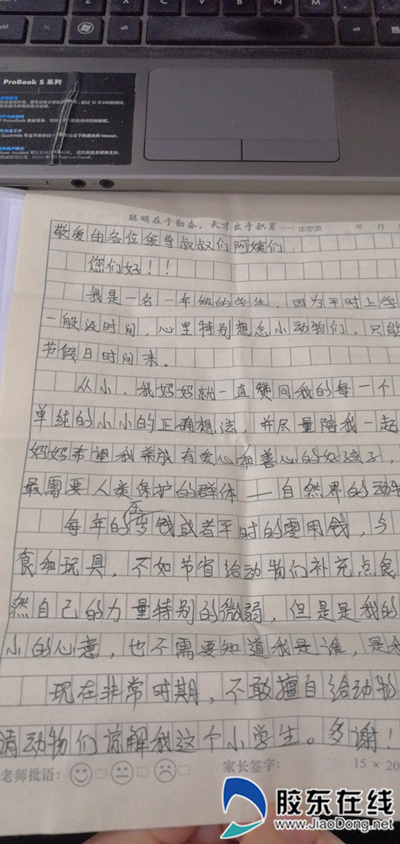 ProBook S 系列
聪明在于勤奋，天才出于积累——华罗庚 年 月
敬爱的各位领导叔叔们阿姨们：
您们好！！
我是一名一年级的学生，因为平时上学
一般没时间，心里特别想念小动物们，只能
节假日时间来。
从小，我妈妈就一直赞同我的每一个
单纯的小小的正确想法，并尽量陪我一起
妈妈希望我养成有爱心和善心的好孩子，
最需要人类保护的群体——自然界的动物
每年的压岁钱或者平时的零用钱，与
食和玩具，不如节省给动物们补充点食
然自己的力量特别的微弱，但是是我的
小的心意，也不需要知道我是谁，是我
现在非常时期，不敢擅自给动物
请动物们谅解我这个小学生。多谢！
老师批语： 家长签字： 15 × 20
胶东在线
www.JiaoDong.net